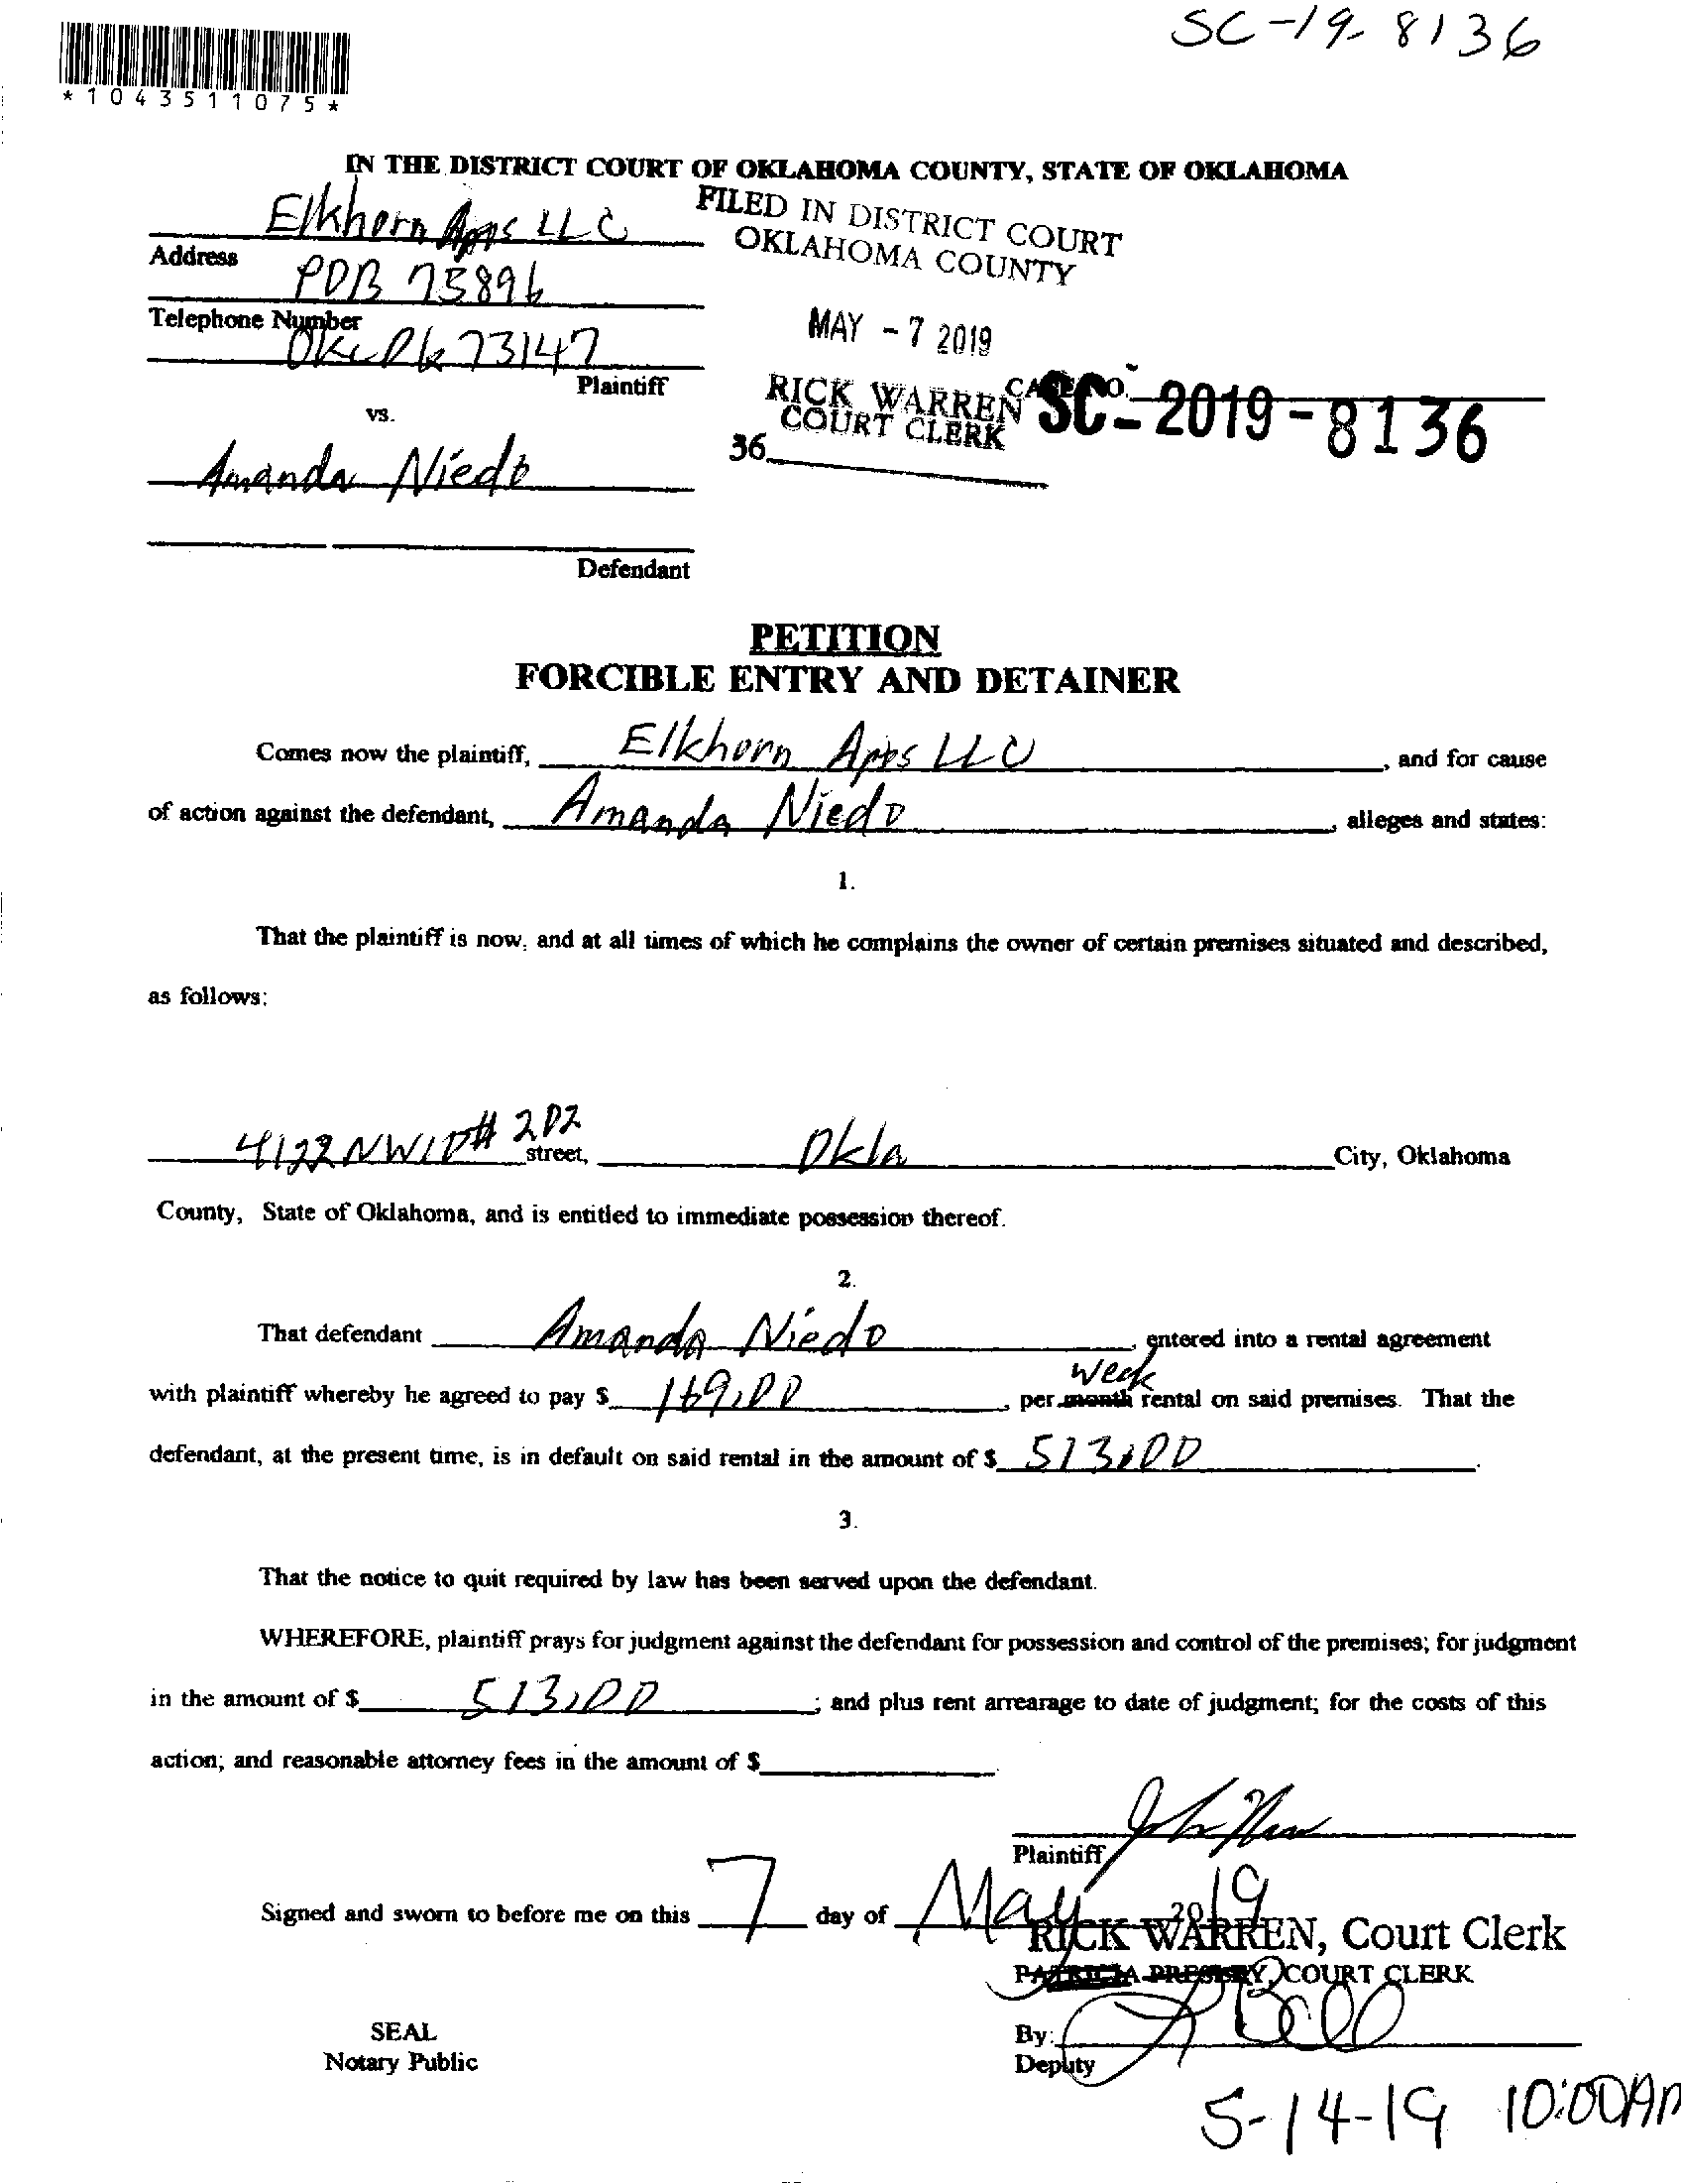 SC-19-8136
*1043511075*
IN THE DISTRICT COURT OF OKLAHOMA COUNTY, STATE OF OKLAHOMA
Elkhorn Apps LLC
Address
POB 75896
Telephone Number
OKC Ok 73147
Plaintiff
FILED IN DISTRICT COURT
OKLAHOMA COUNTY
MAY - 7 2019
RICK WARREN
COURT CLERK
36
CASE NO. SC-2019-8136
vs.
Amanda Niedo
Defendant
PETITION
FORCIBLE ENTRY AND DETAINER
Comes now the plaintiff, Elkhorn Apps LLC, and for cause
of action against the defendant, Amanda Niedo, alleges and states:
1.
That the plaintiff is now, and at all times of which he complains the owner of certain premises situated and described,
as follows:
4122 NW10# 202 street, Okla City, Oklahoma
County, State of Oklahoma, and is entitled to immediate possession thereof.
2.
That defendant Amanda Niedo, entered into a rental agreement
with plaintiff whereby he agreed to pay $ 169.00, per month week rental on said premises. That the
defendant, at the present time, is in default on said rental in the amount of $ 513.00.
3.
That the notice to quit required by law has been served upon the defendant.
WHEREFORE, plaintiff prays for judgment against the defendant for possession and control of the premises; for judgment
in the amount of $ 513.00; and plus rent arrearage to date of judgment; for the costs of this
action; and reasonable attorney fees in the amount of $
Plaintiff
Signed and sworn to before me on this 7 day of May 2019
RICK WARREN, Court Clerk
PATRICIA PRESLEY, COURT CLERK
SEAL
Notary Public
By:
Deputy
5-14-19 10:00AM